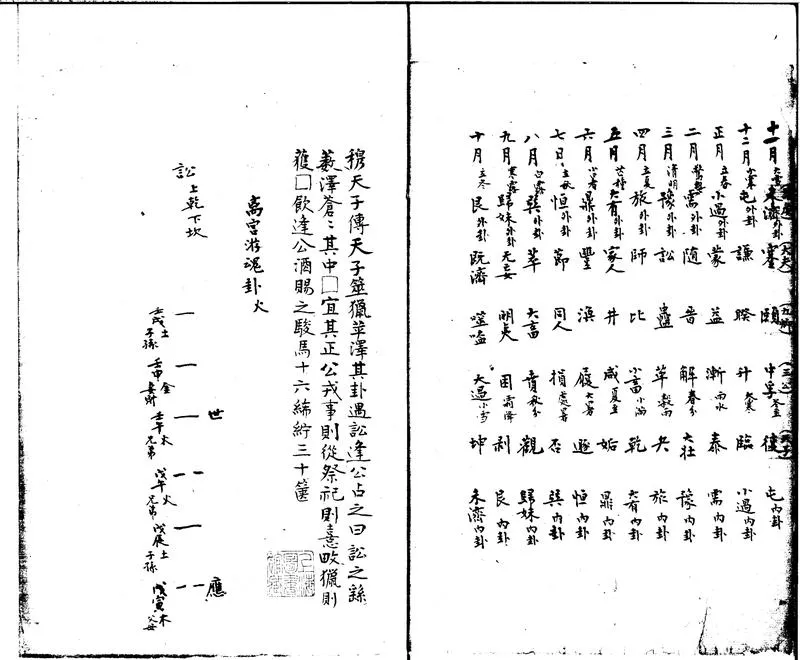 (大夫) (九卿) (三公) (天子)
十一月 大雪 未濟外卦 蹇 頤 中孚 冬至 復 屯內卦
十二月 小寒 屯外卦 謙 睽 升 大寒 臨 小過內卦
正月 立春 小過外卦 蒙 益 漸 雨水 泰 需內卦
二月 驚蟄 需外卦 隨 晉 解 春分 大壯 豫內卦
三月 清明 豫外卦 訟 蠱 革 穀雨 夬 旅內卦
四月 立夏 旅外卦 師 比 小畜 小滿 乾 大有內卦
五月 芒種 大有外卦 家人 井 咸 夏至 姤 鼎內卦
六月 小暑 鼎外卦 豐 渙 履 大暑 遯 恒內卦
七日 立秋 恒外卦 節 同人 損 處暑 否 巽內卦
八月 白露 巽外卦 萃 大畜 賁 秋分 觀 歸妹內卦
九月 寒露 歸妹外卦 无妄 明夷 困 霜降 剝 艮內卦
十月 立冬 艮外卦 既濟 噬嗑 大過 小雪 坤 未濟內卦
穆天子傳天子筮獵苹澤其卦遇訟逢公占之曰訟之繇
藪澤蒼〻其中□宜其正公戎事則從祭祀則憙畋獵則
獲□飲逢公酒賜之駿馬十六絺紵三十篋
离宮游魂卦火
訟 上乾下坎
世 應
壬戌土 子孫
壬申金 妻財
壬午火 兄弟
戊午火 兄弟
戊辰土 子孫
戊寅木 父母